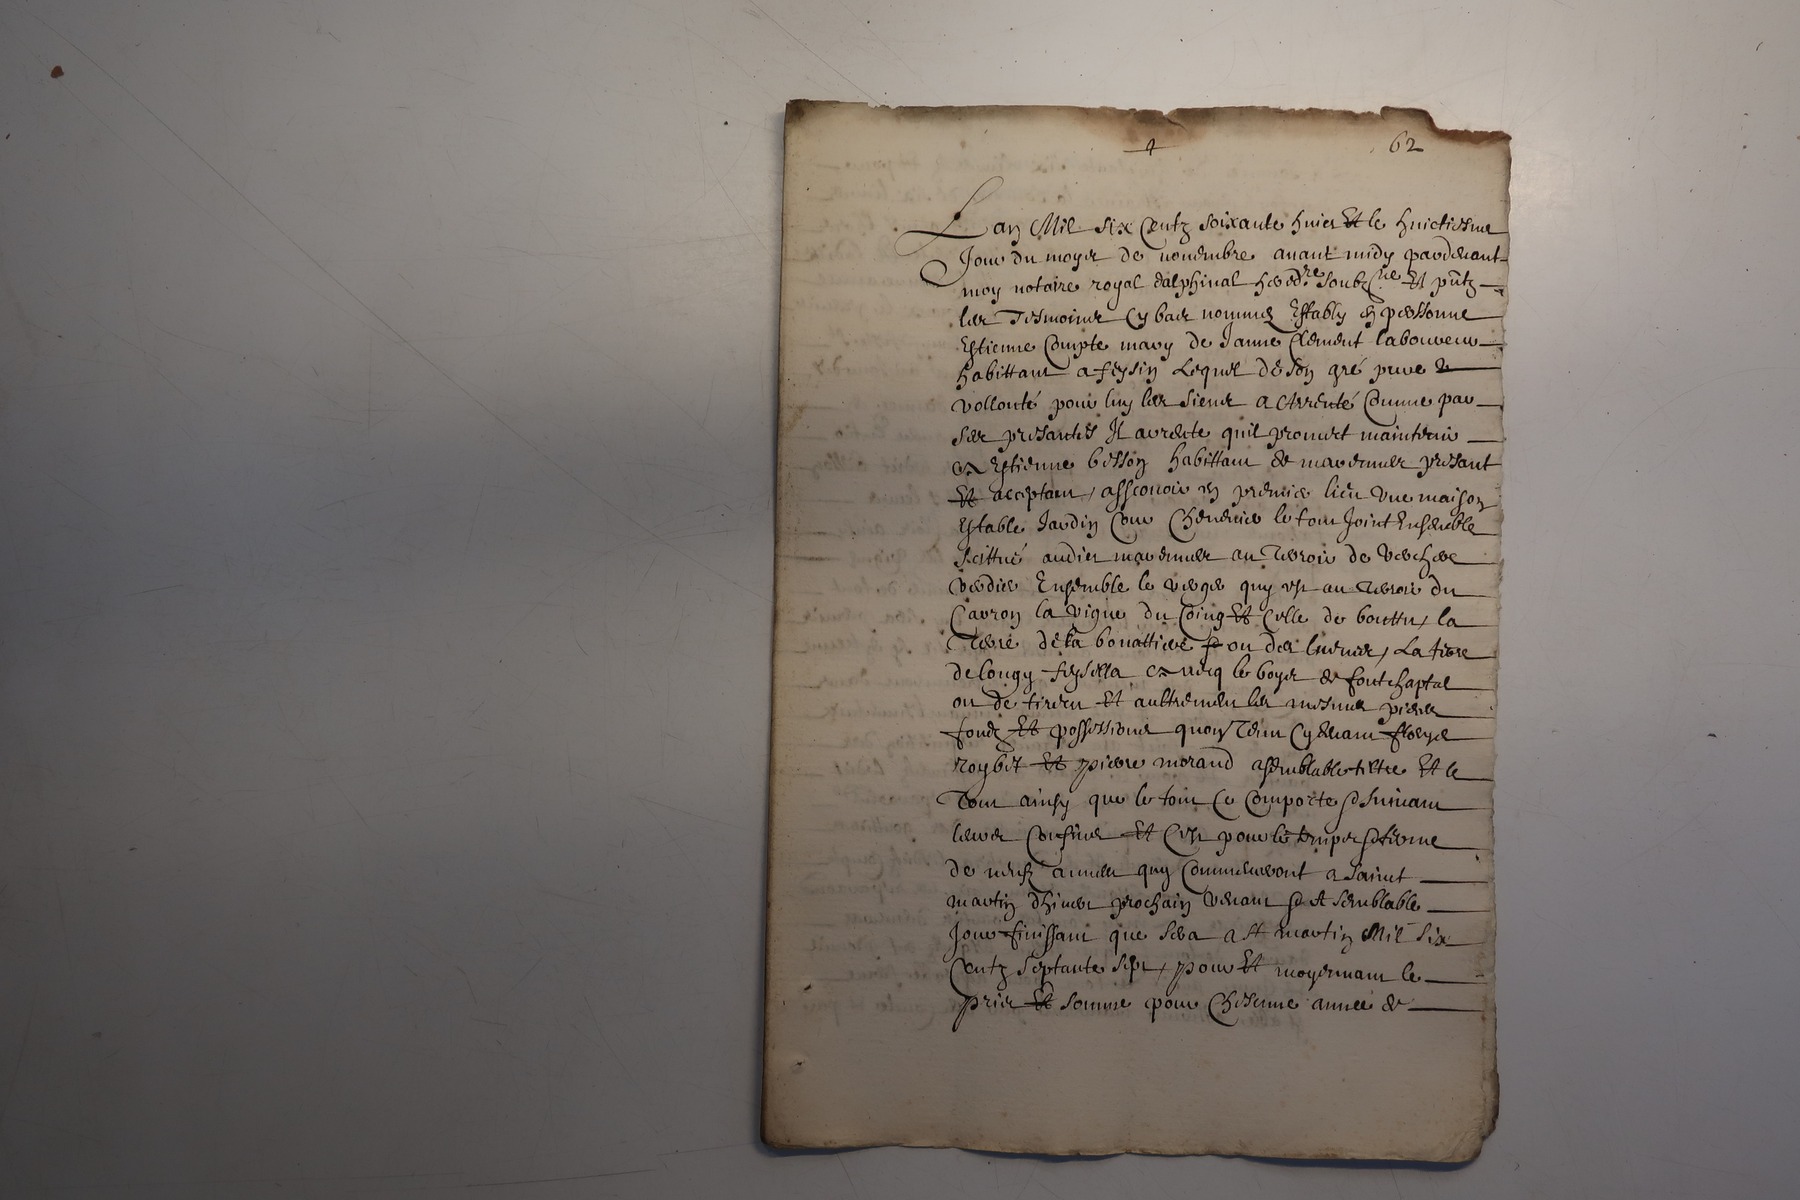 62
Lan Mil six Centz soixante huict Et le huictiesme
Jour du moys de novembre avant midy pardevant
moy notaire royal dalphinal hered.re soubz.ne Et pntz
les Tesmoins Cy bas nommez Estably en personne
Estienne Compte mary de Janne Clement laboureur
habittant a feysin Lequel de son gré pure &
vollonté pour luy les siens a Arrenté Comme par
ses presantes Il arrente quil promet maintenir
a Estienne besson habittant de marennes presant
Et acceptant, assçavoir en premier lieu Une maison
Estable Jardin Cour Chenevier le tout Joint Ensemble
scittué audict marennes au Terroir de
Ensemble le verger quy est au Terroir du
la vigne du Coing Et Celle de la
Terre de la ou des La terre
de longy avecq le boys de fontchaptal
ou de Et aultrement les mesmes pieces
fondz Et possessions quont Tenu Cydevant
Et pierre morand a semblable tiltre Et le
Tout ainsy que le tout Ce Comporte suivant
leurs Confins Et Cest pour le temps & terme
de neufz années quy Commenceront a Sainct
martin dhiver prochain venant & A semblable
Jour finissant que sera a St martin Mil six
Centz septante sept, pour Et moyennant le
prix Et somme pour Chescune année de